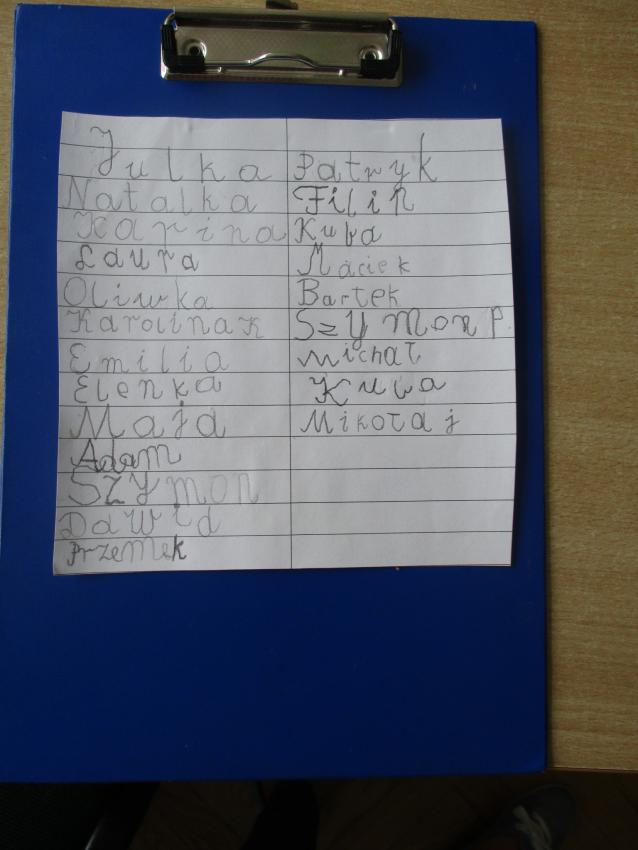 Julka
Natalka
Karina
Laura
Oliwka
Karolina K
Emilia
Elenka
Maja
Adam
Szymon
Dawid
Przemek
Patryk
Filip
Kuba
Maciek
Bartek
Szymon P.
Michał
Kuba
Mikołaj